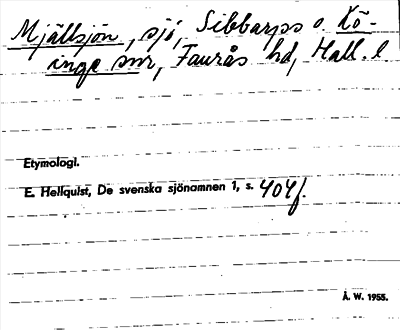 Mjällsjön, sjö, Sibbarps o. Kö-
inge snr, Faurås hd, Hall. l.
Etymologi.
E. Hellquist, De svenska sjönamnen 1, s. 404f.
Å. W. 1955.